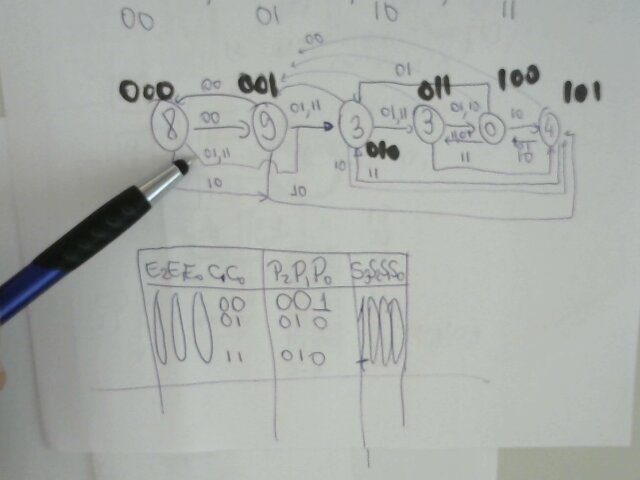 00 01 10 11
00
000 00 001 01 011 100 101
8 00 9 01,11 3 01,11 3 01,10 0 10 4
01,11 010 10 11 11 10
10 10
E2E1E0 C1C0 P2P1P0 S3S2S1S0
000 00 001 1000
01 010
11 010